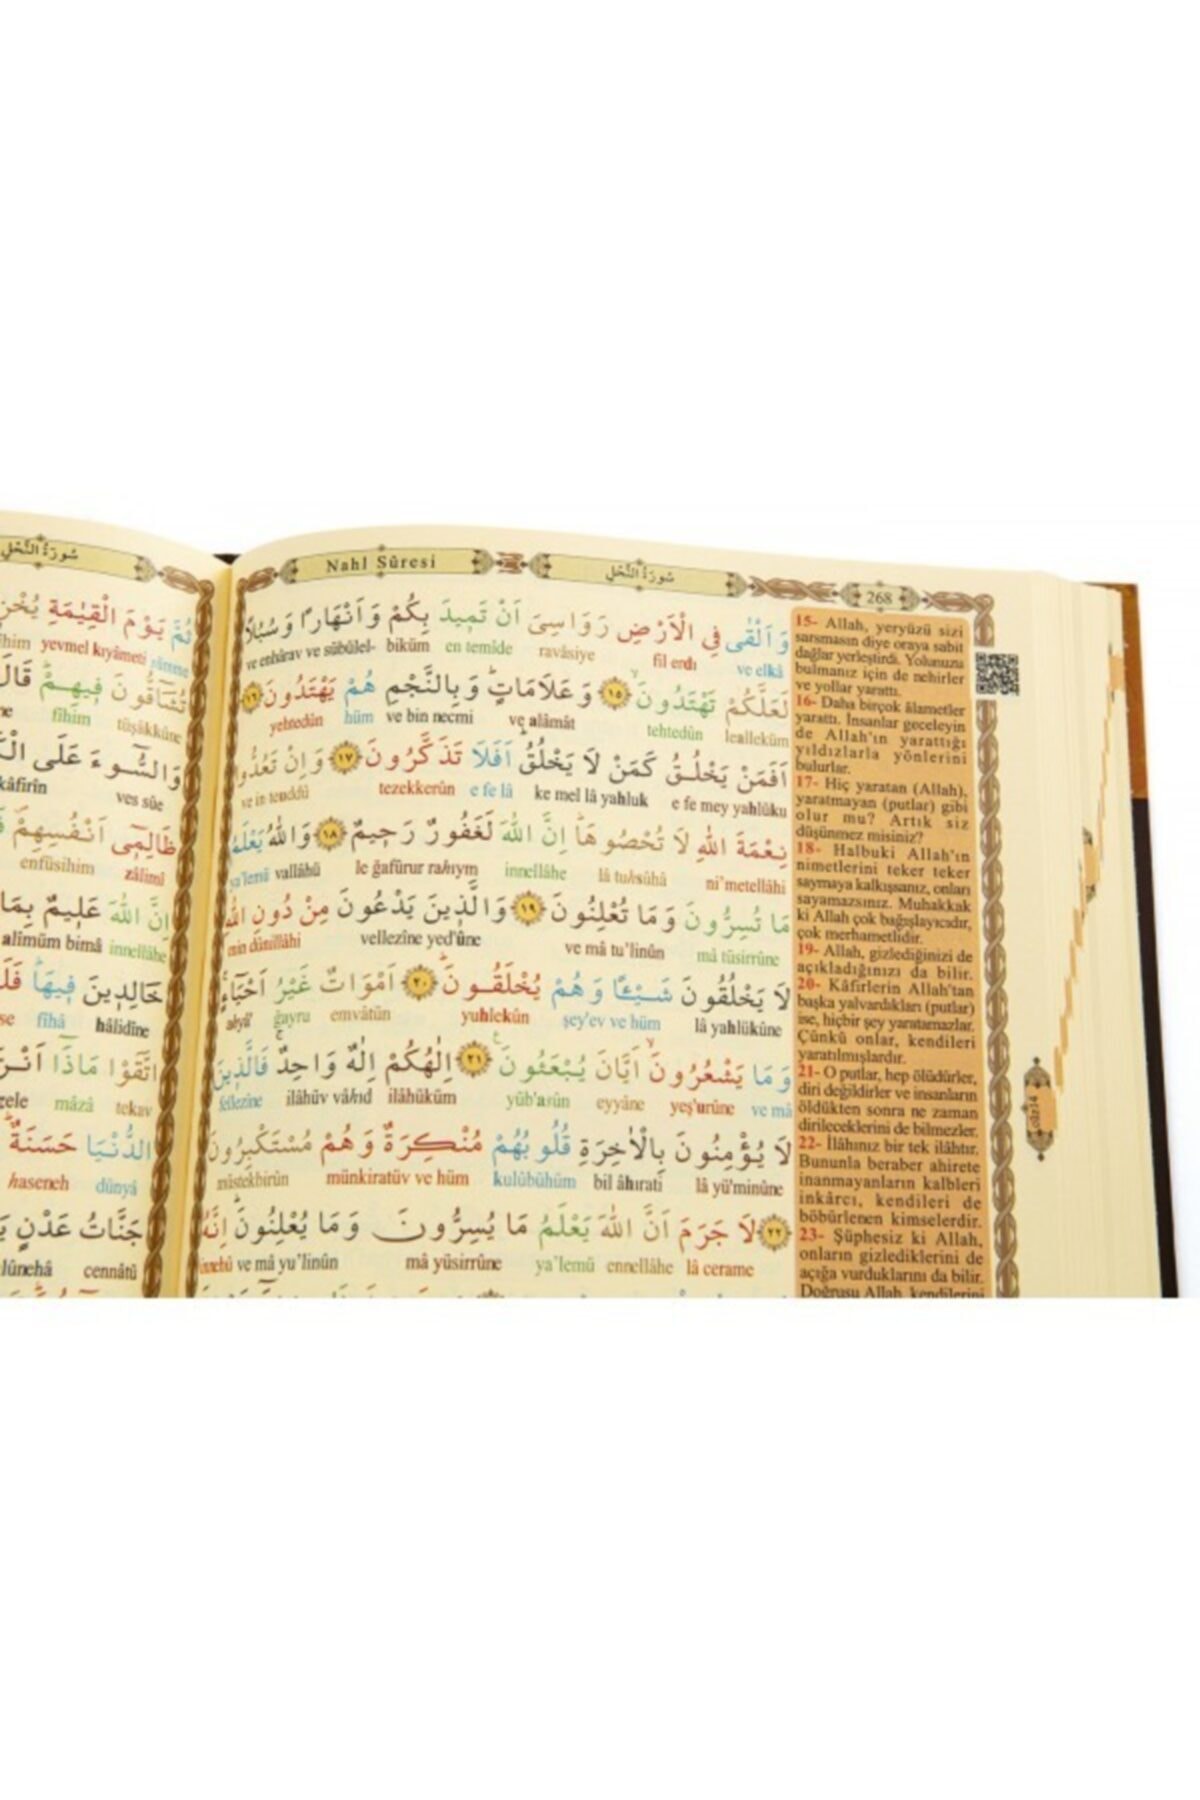 سُورَةُ النَّحْلِ
ثُمَّ يَوْمَ الْقِيٰمَةِ
yevmel kıyâmeti sümme
تُشَٓاقُّونَ فٖيهِمْ قَالَ
fîhim tüşâkkûne
وَالسُّٓوءَ عَلَى
kâfirîn ves sûe
ظَالِمٖٓي اَنْفُسِهِمْ
enfüsihim zâlimî
اِنَّ اللّٰهَ عَلٖيمٌ بِمَا
alîmüm bimâ innellâhe
خَالِدٖينَ فٖيهَا
fîhâ hâlidîne
اتَّقَوْا مَاذَٓا
mâzâ tekav
الدُّنْيَا حَسَنَةٌ
haseneh dünyâ
جَنَّاتُ عَدْنٍ
cennâtü
Nahl Sûresi
سُورَةُ النَّحْلِ
268
وَاَلْقٰى فِي الْاَرْضِ رَوَاسِيَ اَنْ تَمٖيدَ بِكُمْ وَاَنْهَارًا وَسُبُلًا
ve enhârav ve sübülel- biküm en temîde ravâsiye fil erdı ve elkâ
لَعَلَّكُمْ تَهْتَدُونَۙ ١٥ وَعَلَامَاتٍ وَبِالنَّجْمِ هُمْ يَهْتَدُونَ ١٦
yehtedûn hüm ve bin necmi ve alâmât tehtedûn lealleküm
اَفَمَنْ يَخْلُقُ كَمَنْ لَا يَخْلُقُ اَفَلَا تَذَكَّرُونَ ١٧ وَاِنْ تَعُدُّوا
ve in teuddû tezekkerûn e fe lâ ke mel lâ yahluk e fe mey yahlüku
نِعْمَةَ اللّٰهِ لَا تُحْصُوهَا اِنَّ اللّٰهَ لَغَفُورٌ رَحٖيمٌ ١٨ وَاللّٰهُ يَعْلَمُ
ya'lemü vallâhü le ğafûrur rahıym innellâhe lâ tuhsûhâ ni'metellâhi
مَا تُسِرُّونَ وَمَا تُعْلِنُونَ ١٩ وَالَّذٖينَ يَدْعُونَ مِنْ دُونِ اللّٰهِ
min dûnillâhi vellezîne yed'ûne ve mâ tu'linûn mâ tüsirrûne
لَا يَخْلُقُونَ شَيْـًٔا وَهُمْ يُخْلَقُونَ ٢٠ اَمْوَاتٌ غَيْرُ اَحْيَٓاءٍ
ahyâ' ğayru emvâtün yuhlekûn şey'ev ve hüm lâ yahlükûne
وَمَا يَشْعُرُونَ اَيَّانَ يُبْعَثُونَ ٢١ اِلٰهُكُمْ اِلٰهٌ وَاحِدٌ فَالَّذٖينَ
fellezîne ilâhüv vâhıd ilâhüküm yüb'asûn eyyâne yeş'urûne ve mâ
لَا يُؤْمِنُونَ بِالْاٰخِرَةِ قُلُوبُهُمْ مُنْكِرَةٌ وَهُمْ مُسْتَكْبِرُونَ
müstekbirûn münkiratüv ve hüm kulûbühüm bil âhırati lâ yü'minûne
٢٢ لَا جَرَمَ اَنَّ اللّٰهَ يَعْلَمُ مَا يُسِرُّونَ وَمَا يُعْلِنُونَ اِنَّهُ
innehû ve mâ yu'linûn mâ yüsirrûne ya'lemü ennellâhe lâ cerame
15- Allah, yeryüzü sizi
sarsmasın diye oraya sabit
dağlar yerleştirdi. Yolunuzu
bulmanız için de nehirler
ve yollar yarattı.
16- Daha birçok âlametler
yarattı. İnsanlar geceleyin
de Allah'ın yarattığı
yıldızlarla yönlerini
bulurlar.
17- Hiç yaratan (Allah),
yaratmayan (putlar) gibi
olur mu? Artık siz
düşünmez misiniz?
18- Halbuki Allah'ın
nimetlerini teker teker
saymaya kalkışsanız, onları
sayamazsınız. Muhakkak
ki Allah çok bağışlayıcıdır,
çok merhametlidir.
19- Allah, gizlediğinizi de
açıkladığınızı da bilir.
20- Kâfirlerin Allah'tan
başka yalvardıkları (putlar)
ise, hiçbir şey yaratamazlar.
Çünkü onlar, kendileri
yaratılmışlardır.
21- O putlar, hep ölüdürler,
diri değildirler ve insanların
öldükten sonra ne zaman
dirileceklerini de bilmezler.
22- İlâhınız bir tek ilâhtır.
Bununla beraber ahirete
inanmayanların kalbleri
inkârcı, kendileri de
böbürlenen kimselerdir.
23- Şüphesiz ki Allah,
onların gizlediklerini de
açığa vurduklarını da bilir.
Doğrusu Allah, kendilerini
cüz14